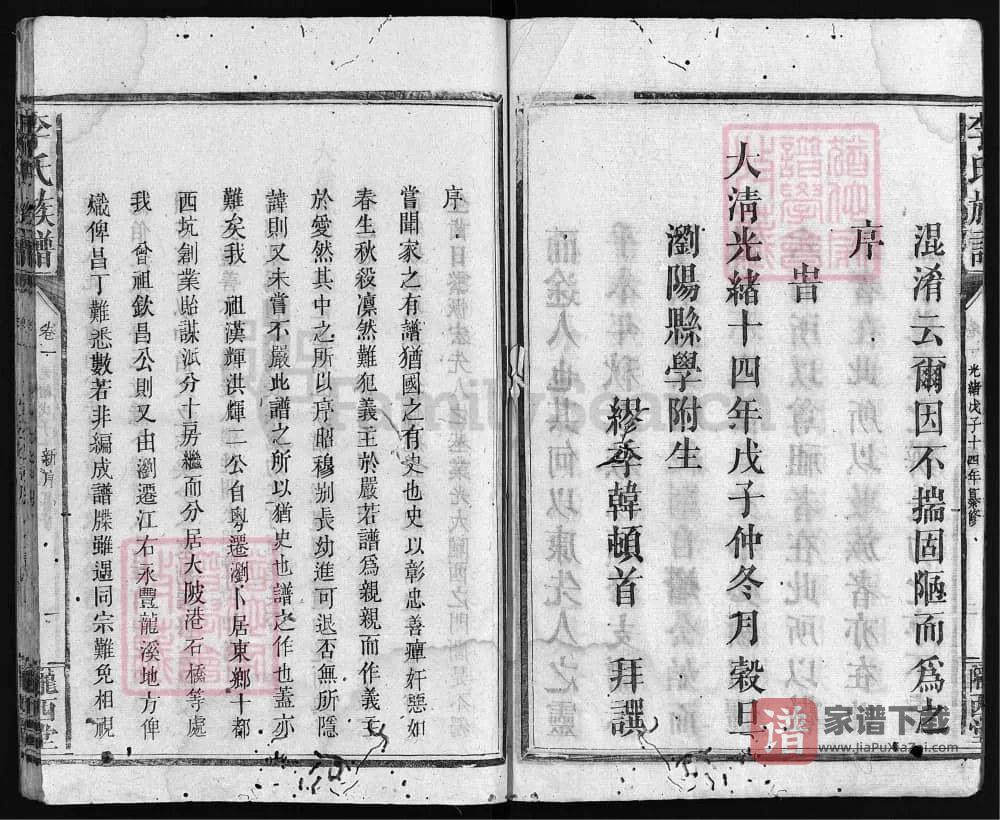 混淆云爾因不揣固陋而爲之
序
旹
大清光緒十四年戊子仲冬月榖旦
瀏陽縣學附生
繆季韓頓首 拜譔
光緒戊子十四年纂修
序
嘗聞家之有譜猶國之有史也史以彰忠善癉奸惡如
春生秋殺凛然難犯義主於嚴若譜爲親親而作義主
於愛然其中之所以序昭穆别長幼進可退否無所隱
諱則又未嘗不嚴此譜之所以猶史也譜之作也蓋亦
難矣我 祖漢輝洪輝二公自粤遷瀏卜居東鄉十都
西坑創業貽謀派分十房繼而分居大陂港石橋等處
我 曾祖欽昌公則又由瀏遷江右永豐龍溪地方俾
熾俾昌丁難悉數若非編成譜牒雖遇同宗難免相視
李氏族譜
卷一
隴西堂
FamilySearch
譜
家谱下载
www.jiaPuXiaZai.com